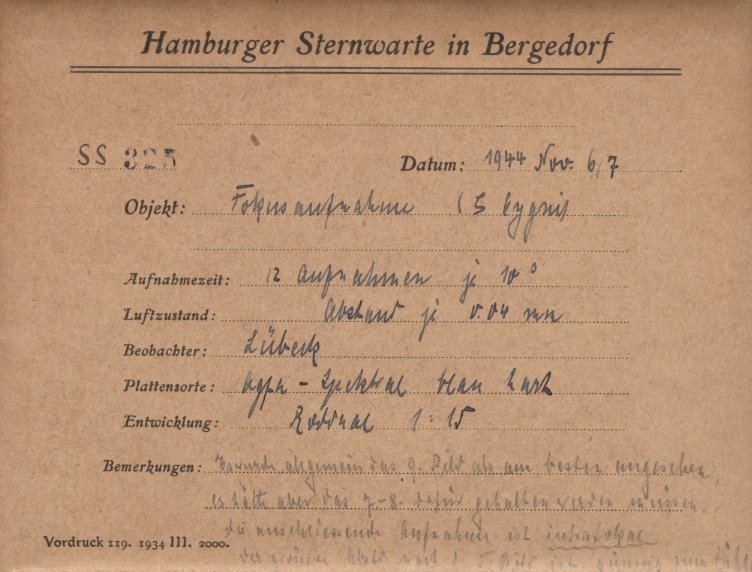 Hamburger Sternwarte in Bergedorf
SS 325 Datum: 1944 Nov. 6/7
Objekt: Fokusaufnahme ( Cygni
Aufnahmezeit: 12 Aufnahmen je 10 s
Luftzustand: Abstand je 0.04 mm
Beobachter: Lübeck
Plattensorte: Agfa - Spektral blau hart
Entwicklung: Rodinal 1 : 15
Bemerkungen: Es wurde allgemein das 9. Bild als am besten angesehen,
es hätte aber das 7-8. dafür gehalten werden müssen.
die anschliessende Aufnahme ist intrafokal
Vordruck 119. 1934 III. 2000.
der grössere Bild ist